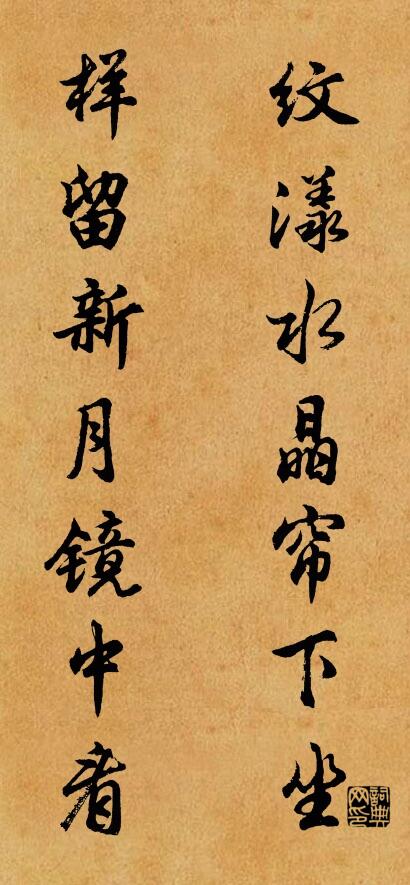 纹漾水晶帘下坐
样留新月镜中看
詞典网印